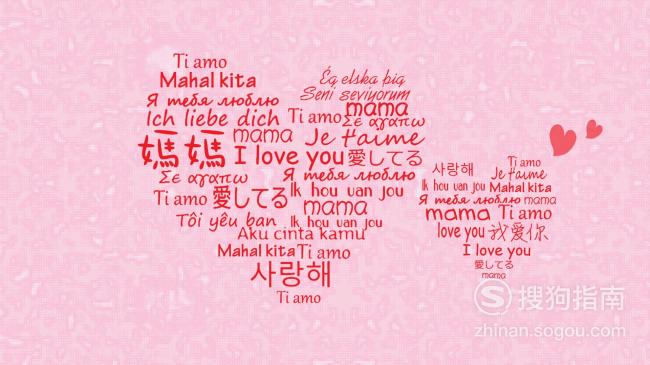 Ti amo
Mahal kita
Ég elska þig
Seni seviyorum
Я тебя люблю
mama
Ich liebe dich
Ti amo
Σε αγαπω
媽媽
mama
Je t'aime
I love you
愛してる
Σε αγαπω
Я тебя люблю
Ti amo
愛してる
Ik hou van jou
mama
Tôi yêu bạn
Ik hou van jou
Aku cinta kamu
Mahal kita
Ti amo
사랑해
Ti amo
Ti amo
사랑해
Je t'aime
Ik hou van jou
Mahal kita
Я тебя люблю
mama
mama
Ti amo
love you
我爱你
I love you
愛してる
mama
搜狗指南
zhinan.sogou.com